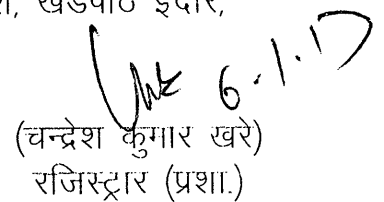 खंडपीठ इंदौर,
6.1.17
(चन्द्रेश कुमार खरे)
रजिस्ट्रार (प्रशा.)